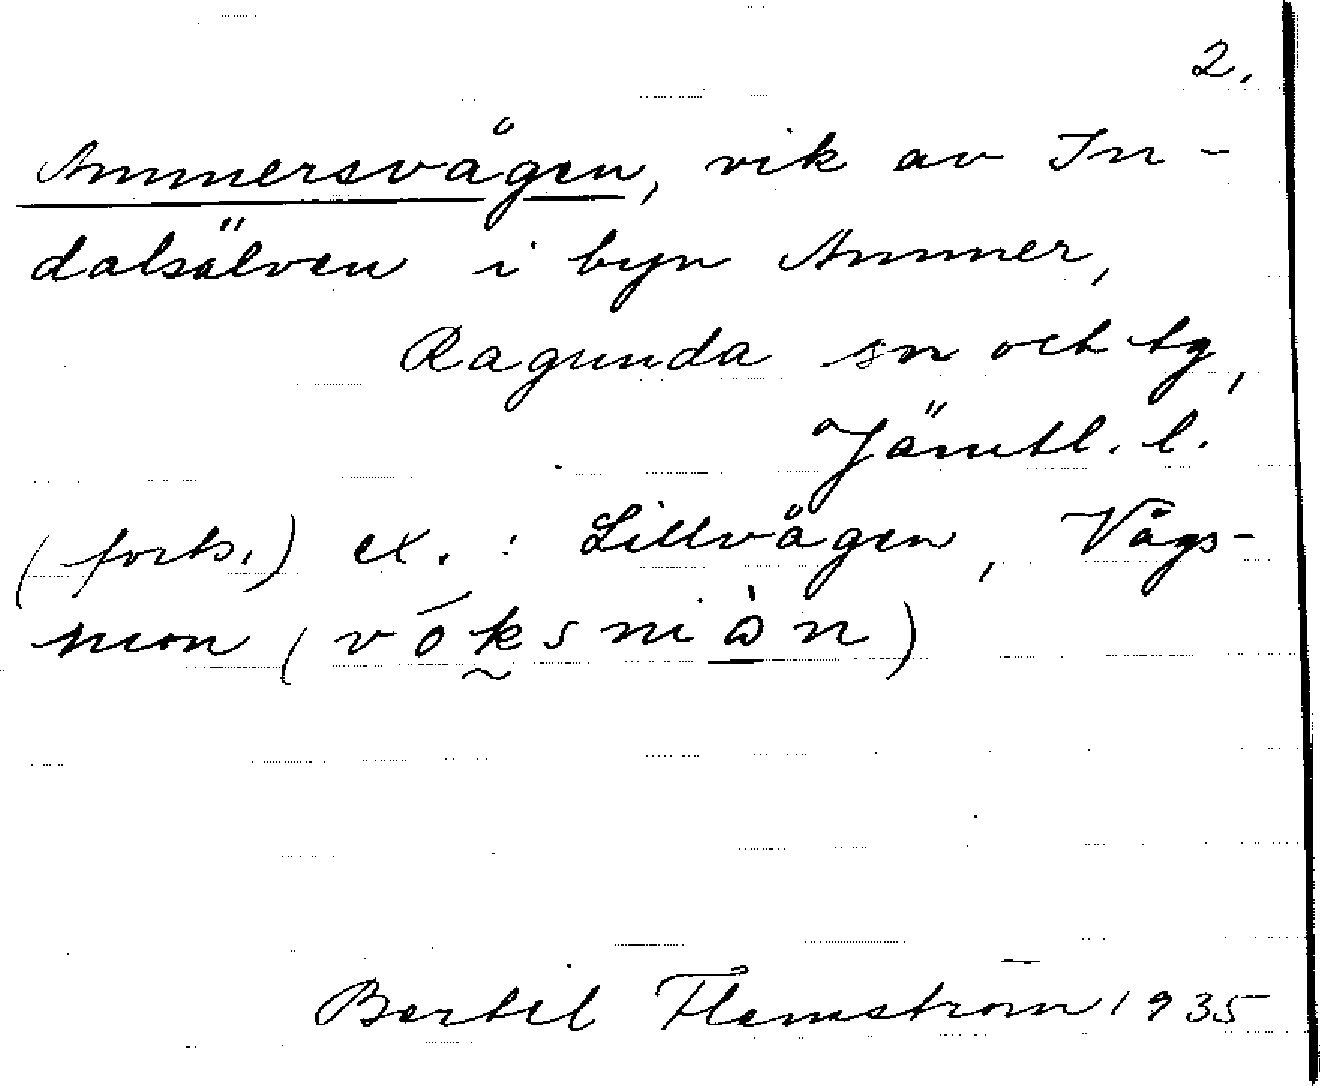 2.
Ammersvågen, vik av In-
dalsälven i byn Ammer,
Ragunda sn och tg,
Jämtl. l.
(forts.) ex. : Lillvågen, Vågs-
mon (
Bertil Flemström 1935